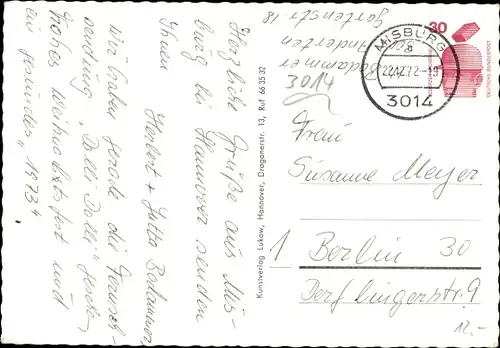 Herzliche Grüße aus Mis-
burg bei Hannover senden
Ihnen
Herbert + Jutta Bodammer
wir haben gerade die Fernseh-
sendung "Dalli Dalli" gesehen,
frohes Weihnachtsfest und
ein gesundes "1973"
Kunstverlag Lukow, Hannover, Dragonerstr. 13, Ruf 66 35 32
Bodammer
Anderten
Gartenstr 18
3014
MISBURG
a
22.12.72-19
3014
30
DEUTSCHE BUNDESPOST
Frau
Susanne Meyer
1 Berlin 30
Derfflingerstr. 9
12.-